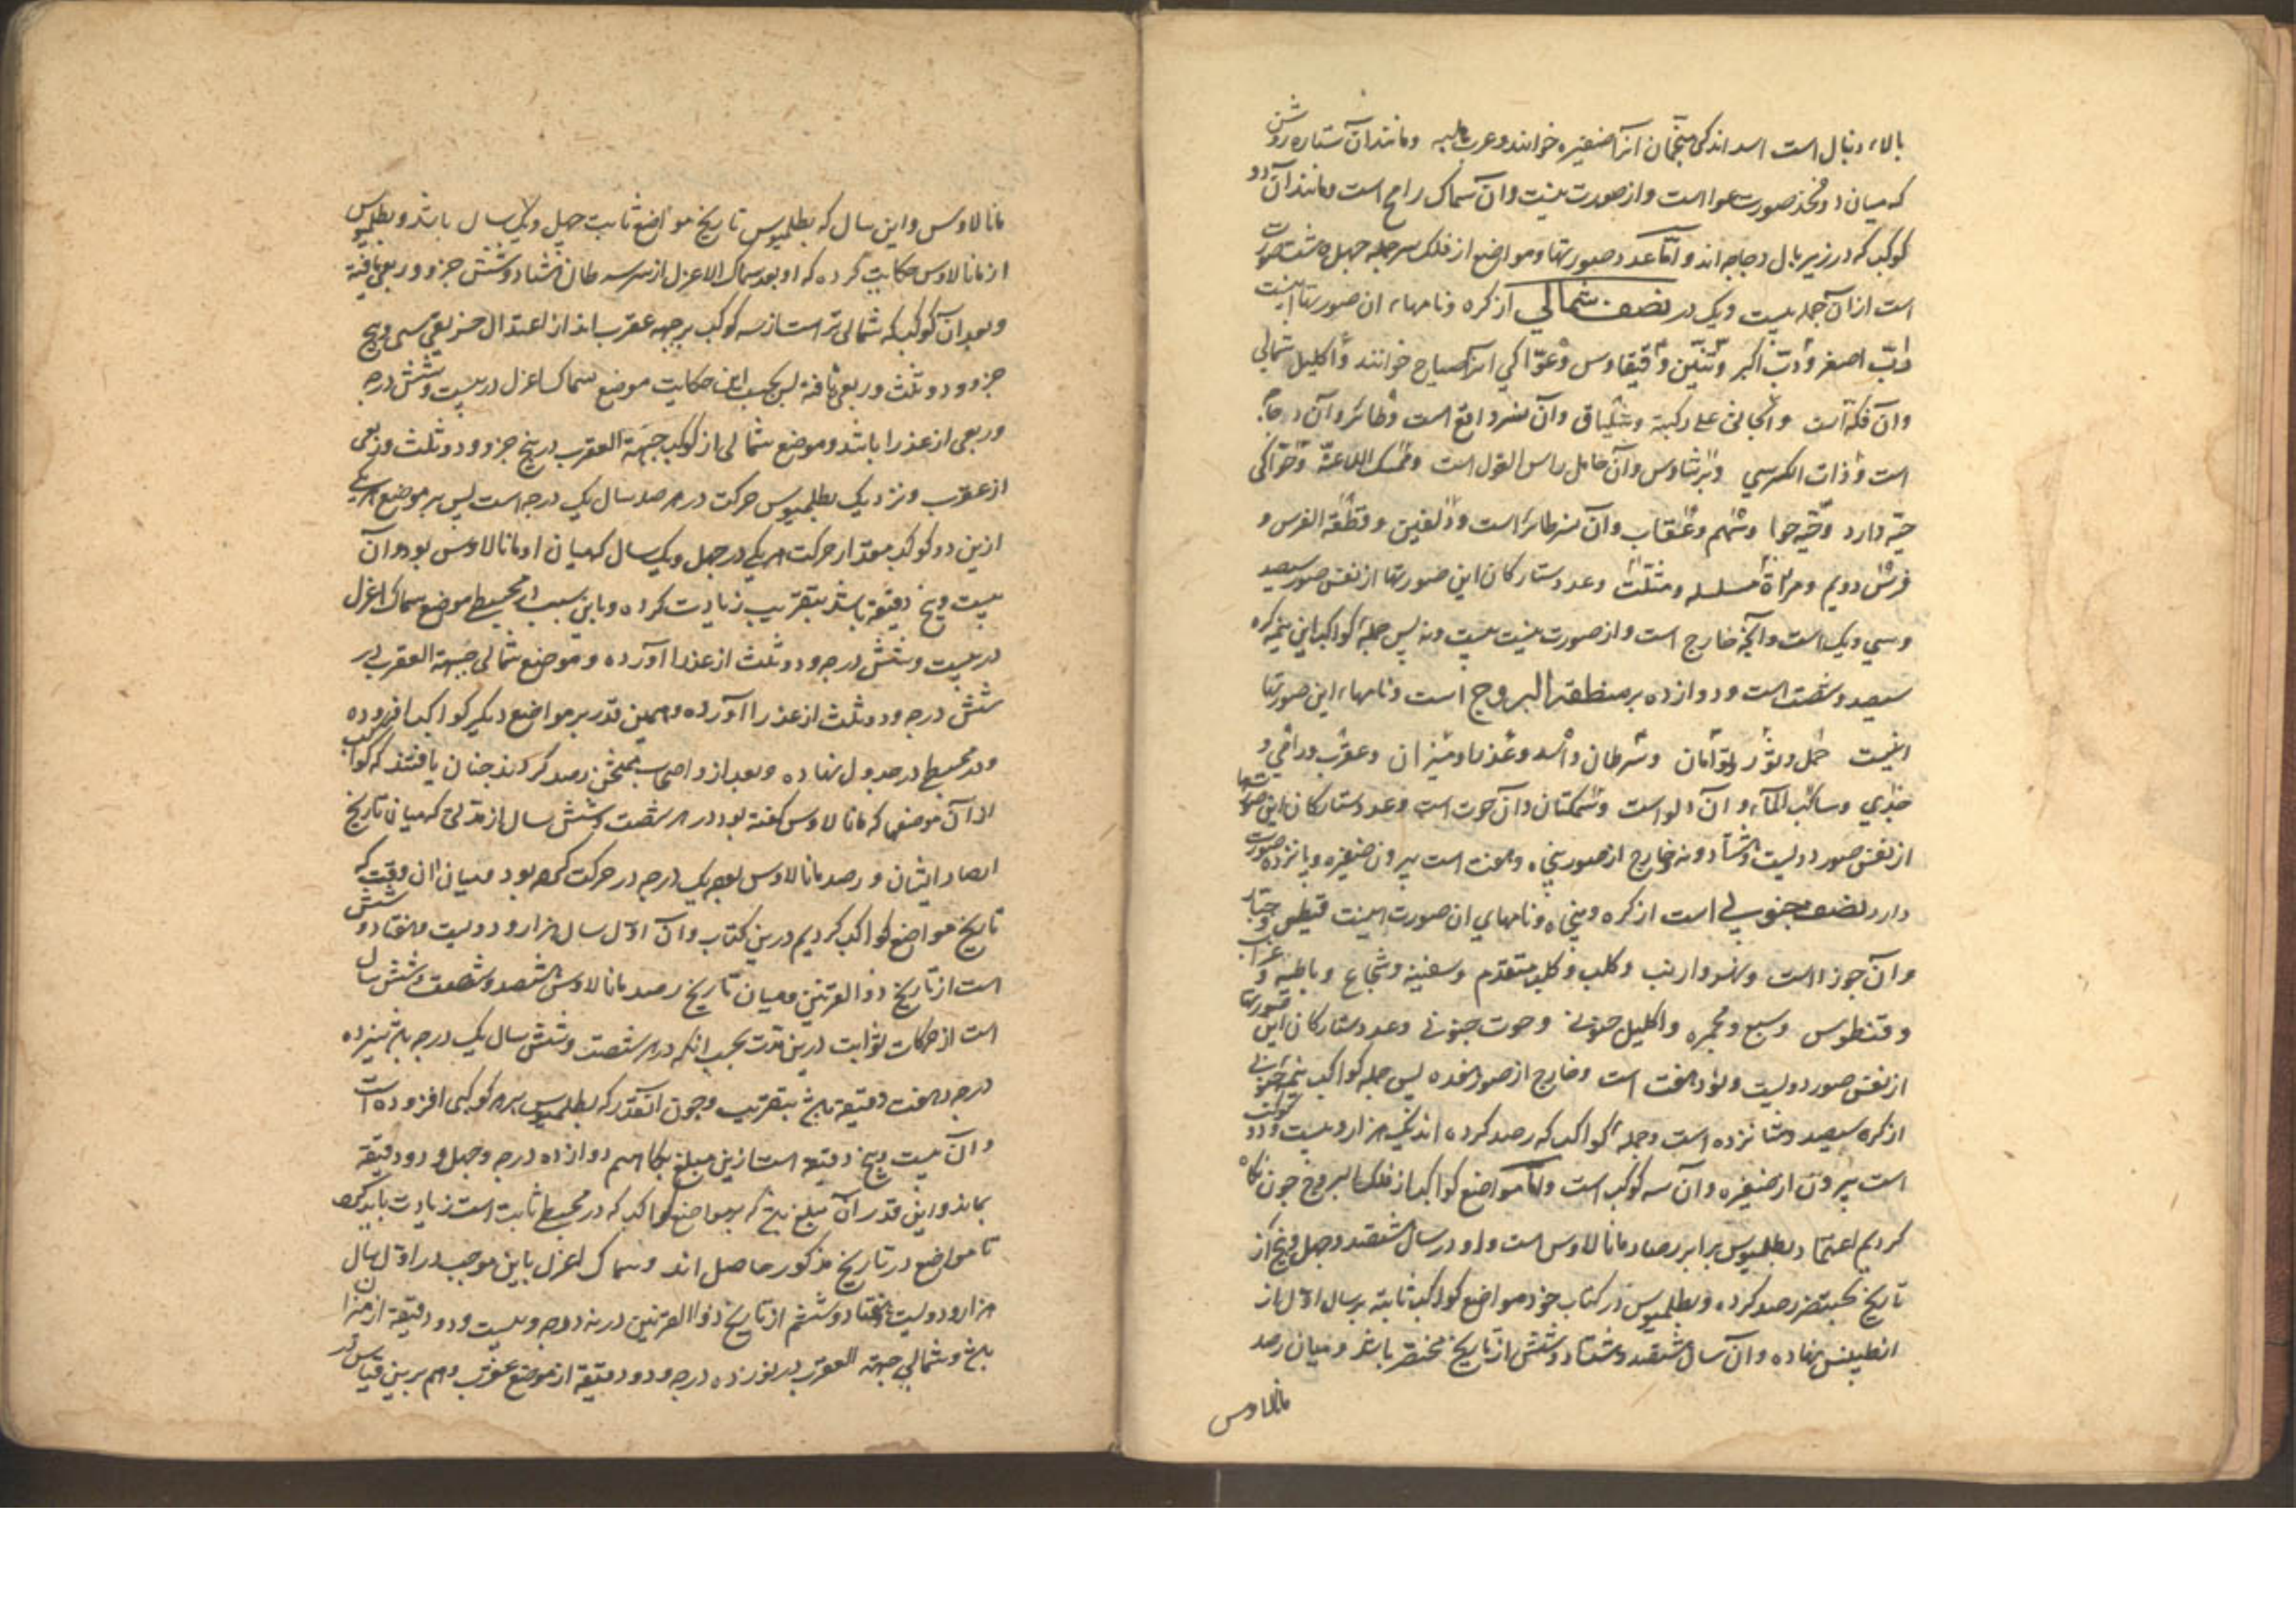 بالاء دنبال است اسد اند کی منجمان آنرا ضفیره خوانند وعرب هلبه ومانند آن ستاره روشن
که میان دو فخذ صورت عوا است واز صورت نیست وان سماک رامح است ومانند آن دو
کوکب که در زیر بال دجاجه اند و امّا عدد صورتها ومواضع از فلک سر جمله چهل وهشت صورت
است از ان جمله بیست ویک در نصف شمالي از کره ونامهاء ان صورتها اینست
دبّ اصغر ودبّ اکبر وتنّین وقیقاوس وعوّا کی انرا صیاح خوانند واکلیل شمالي
وان فکه است والجاثی علی رکبته وشلیاق وان نسر واقع است وطائر وآن دجاجه
است وذات الکرسي وبرشاوس وآن حامل راس الغول است وممسک الاعنّة وحوّا کی
حیّه دارد وحیّه حوا وسهم وعقاب وان نسر طائر است ودلفین وقطعة الفرس و
فرس دویم ومراة مسلسله ومثلّث وعدد ستارکان این صورتها از نفس صور سیصد
وسي ویک است وانچه خارج است واز صورت نیست بیست ونه پس جملهٔ کواکب این نیمهٔ کره
سیصد وشصت است ودوازده بر منطقة البروج است ونامهاء این صورتها
اینست حمل وثور وتوامان وسرطان واسد وعذرا ومیزان وعقرب ورامی و
جدي وساکب المآء وآن دلو است وسمکتان وآن حوت است وعدد ستارکان این صورتها
از نفس صور دویست وهشتاد ونه وخارج از صور پنجاه وهفت است بیرون ضفیره وپانزده صورت
دارد نصف جنوبي است از کره ونامهاي ان صورت اینست قیطس وجبّار
وآن جوزا است ونهر وارنب وکلب وکلب متقدّم وسفینه وشجاع وباطیه وغراب
وقنطورس وسبع ومجمره واکلیل جنوبي وحوت جنوبي وعدد ستارکان این صورتها
از نفس صور دویست ونود وهفت است وخارج از صور نوزده پس جملهٔ کواکب نیمهٔ جنوبي
از کره سیصد وشانزده است وجملهٔ کواکب که رصد کرده اند یک هزار وبیست ودو کوکب
است بیرون از ضفیره وآن سه کوکب است وامّا مواضع کواکب از فلک البروج چون نکاه
کردیم اعتماد بطلمیوس بر ابر رصاد مانالاوس است واو در سال هشتصد وچهل وپنج از
تاریخ بختنصر رصد کرده وبطلمیوس در کتاب خود مواضع کواکب ثابته بر سال اوّل از
انطینس نهاده وآن سال هشتصد وهشتاد وشش از تاریخ بختنصر باشد ومیان رصد
مانالاوس
مانالاوس واین سال که بطلمیوس تاریخ مواضع ثابت چهل ویک سال باشد وبطلمیوس
از مانالاوس حکایت کرده که او بعد سماک الاعزل از سر سرطان هشتاد وشش جزو وربعی یافته
وبعد آن کوکب که شمالی تر است از سه کوکب بر جبهه عقرب اند از اعتدال خریفی سی وپنج
جزو ودو ثلث وربعی یافته پس بحسب این حکایت موضع سماک اعزل در بیست وشش درجه
وربعی از عذرا باشد وموضع شمالی از کوکب جبهة العقرب در پنج جزو ودو ثلث وربعی
از عقرب ونزدیک بطلمیوس حرکت در هر صد سال یک درجه است پس بر موضع هر یکی
ازین دو کوکب مقدار حرکت هر یکی در چهل ویک سال که میان او مانالاوس بود وآن
بیست وپنج دقیقه باشد بتقریب زیادت کرده وباین سبب در مجسطي موضع سماک اعزل
در بیست وشش درجه ودو ثلث از عذرا آورده وموضع شمالی جبهة العقرب در
شش درجه ودو ثلث از عذرا آورده وهمین قدر بر مواضع دیکر کواکب افزوده
ودر مجسطي در جدول نهاده وبعد از و اصحاب ممتحن رصد کردند چنان یافتند که کواکب
از آن موضعی که مانالاوس کفته بود در هر شصت وشش سال از مدّتی که میان تاریخ
ارصاد ایشان ورصد مانالاوس بود یک درجه در حرکت کرده بود ومیان ان وقت که
تاریخ مواضع کواکب کردیم درین کتاب وآن اوّل سال هزار ودویست وهفتاد وشش
است از تاریخ ذوالقرنین ومیان تاریخ رصد مانالاوس هشتصد وشصت وشش سال
است از حرکات ثوابت درین مدّت بحسب انکه در هر شصت وشش سال یک درجه باشد سیزده
درجه وهفت دقیقه باشد بتقریب وچون آنقدر که بطلمیوس بر هر کوکبی افزوده است
وآن بیست وپنج دقیقه است ازین مبلغ بکاهیم دوازده درجه وچهل ودو دقیقه
بماند واین قدر آن مبلغ باشد که بر مواضع کواکب که در مجسطي ثابت است زیادت باید کرد
تا مواضع در تاریخ مذکور حاصل اند وسماک اعزل باین موجب در اوّل سال
هزار ودویست وهفتاد وششم از تاریخ ذوالقرنین در نه درجه وبیست ودو دقیقه از میزان
باشد وشمالي جبهة العقرب در نوزده درجه ودو دقیقه از موضع عقرب وهم برین قیاس در